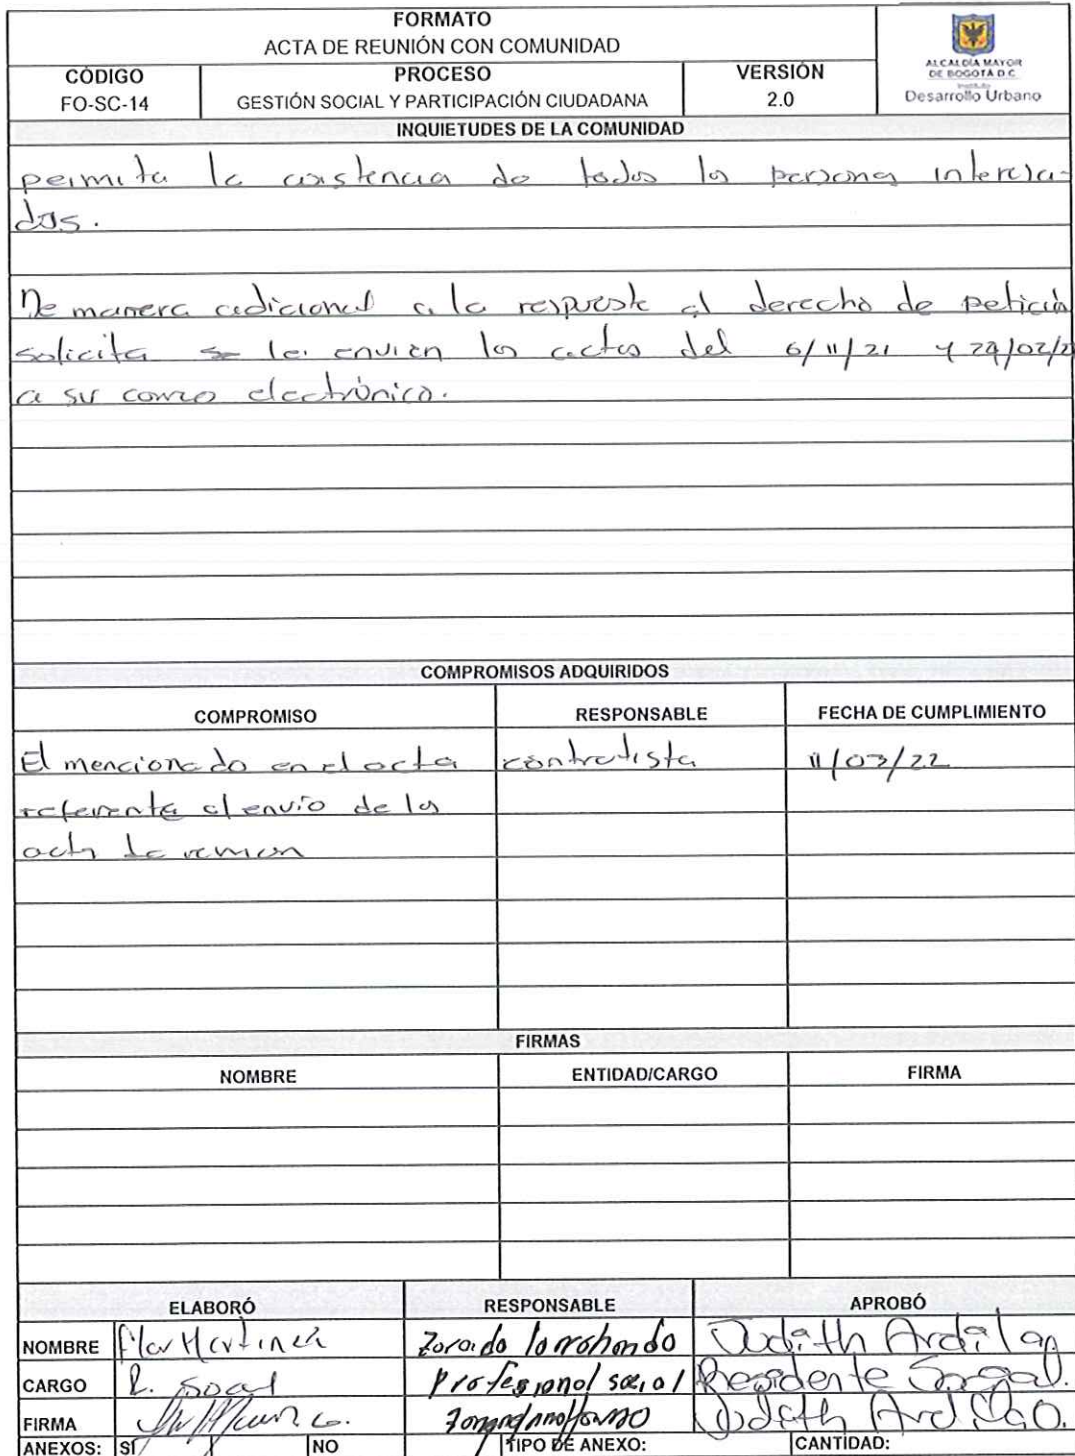 FORMATO
ACTA DE REUNIÓN CON COMUNIDAD
CÓDIGO PROCESO VERSIÓN
FO-SC-14 GESTIÓN SOCIAL Y PARTICIPACIÓN CIUDADANA 2.0
ALCALDÍA MAYOR
DE BOGOTÁ D.C.
Instituto
Desarrollo Urbano
INQUIETUDES DE LA COMUNIDAD
permita la asistencia de todos los persona interesa-
dos.
De manera adicional a la respuesta al derecho de petición
solicita se le envien las actas del 6/11/21 y
a su correo electrónico.
COMPROMISOS ADQUIRIDOS
COMPROMISO RESPONSABLE FECHA DE CUMPLIMIENTO
El mencionado en el acta contratista 11/03/22
referente al envío de las
acta de reunion
FIRMAS
NOMBRE ENTIDAD/CARGO FIRMA
ELABORÓ RESPONSABLE APROBÓ
NOMBRE Martinez Judith Ardila
CARGO R. Social Profesional social Residente Social.
FIRMA Judith Ardila O.
ANEXOS: SÍ NO TIPO DE ANEXO: CANTIDAD: